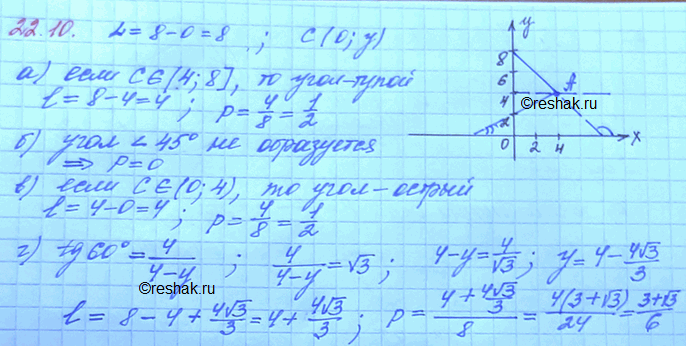 22.10. L = 8-0 = 8 ; C(0; y)
а) если C∈[4; 8], то угол-тупой
l = 8-4=4 ; p = 4/8 = 1/2
б) угол < 45° не образуется
⇒ p=0
в) если C∈(0; 4), то угол-острый
l = 4-0=4 ; p = 4/8 = 1/2
г) tg 60° = 4/(4-y) ; 4/(4-y) = √3 ; 4-y = 4/√3 ; y = 4 - 4√3/3
l = 8-4+4√3/3 = 4+4√3/3 ; p = (4+4√3/3)/8 = 4(3+√3)/24 = (3+√3)/6
y
8
6
A
4
©reshak.ru
2
0 2 4 x
©reshak.ru